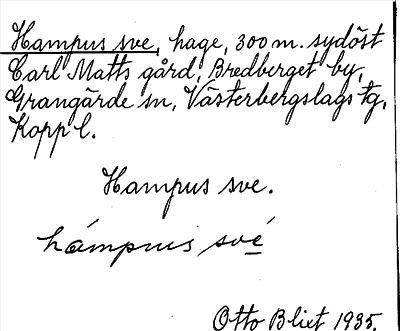 Hampus sve, hage, 300 m. sydöst
Carl Matts gård, Bredberget by,
Grangärde sn, Västerbergslags tg,
Kopp l.
Hampus sve.
hámpus své
Otto Blixt 1935.